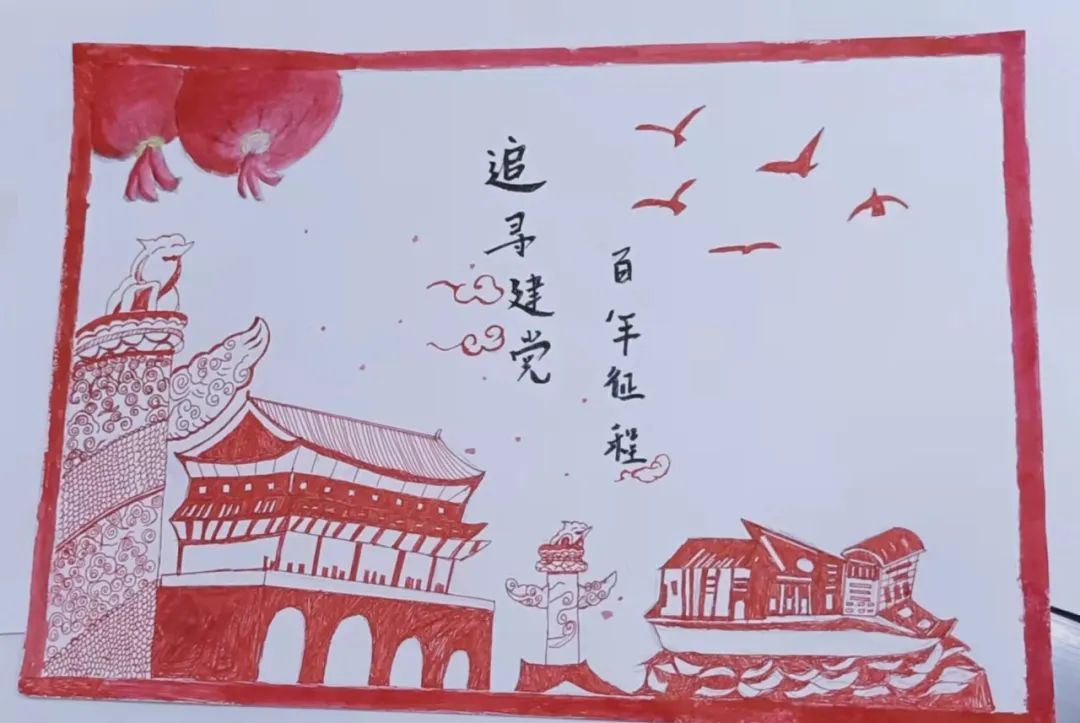 追寻建党
百年征程